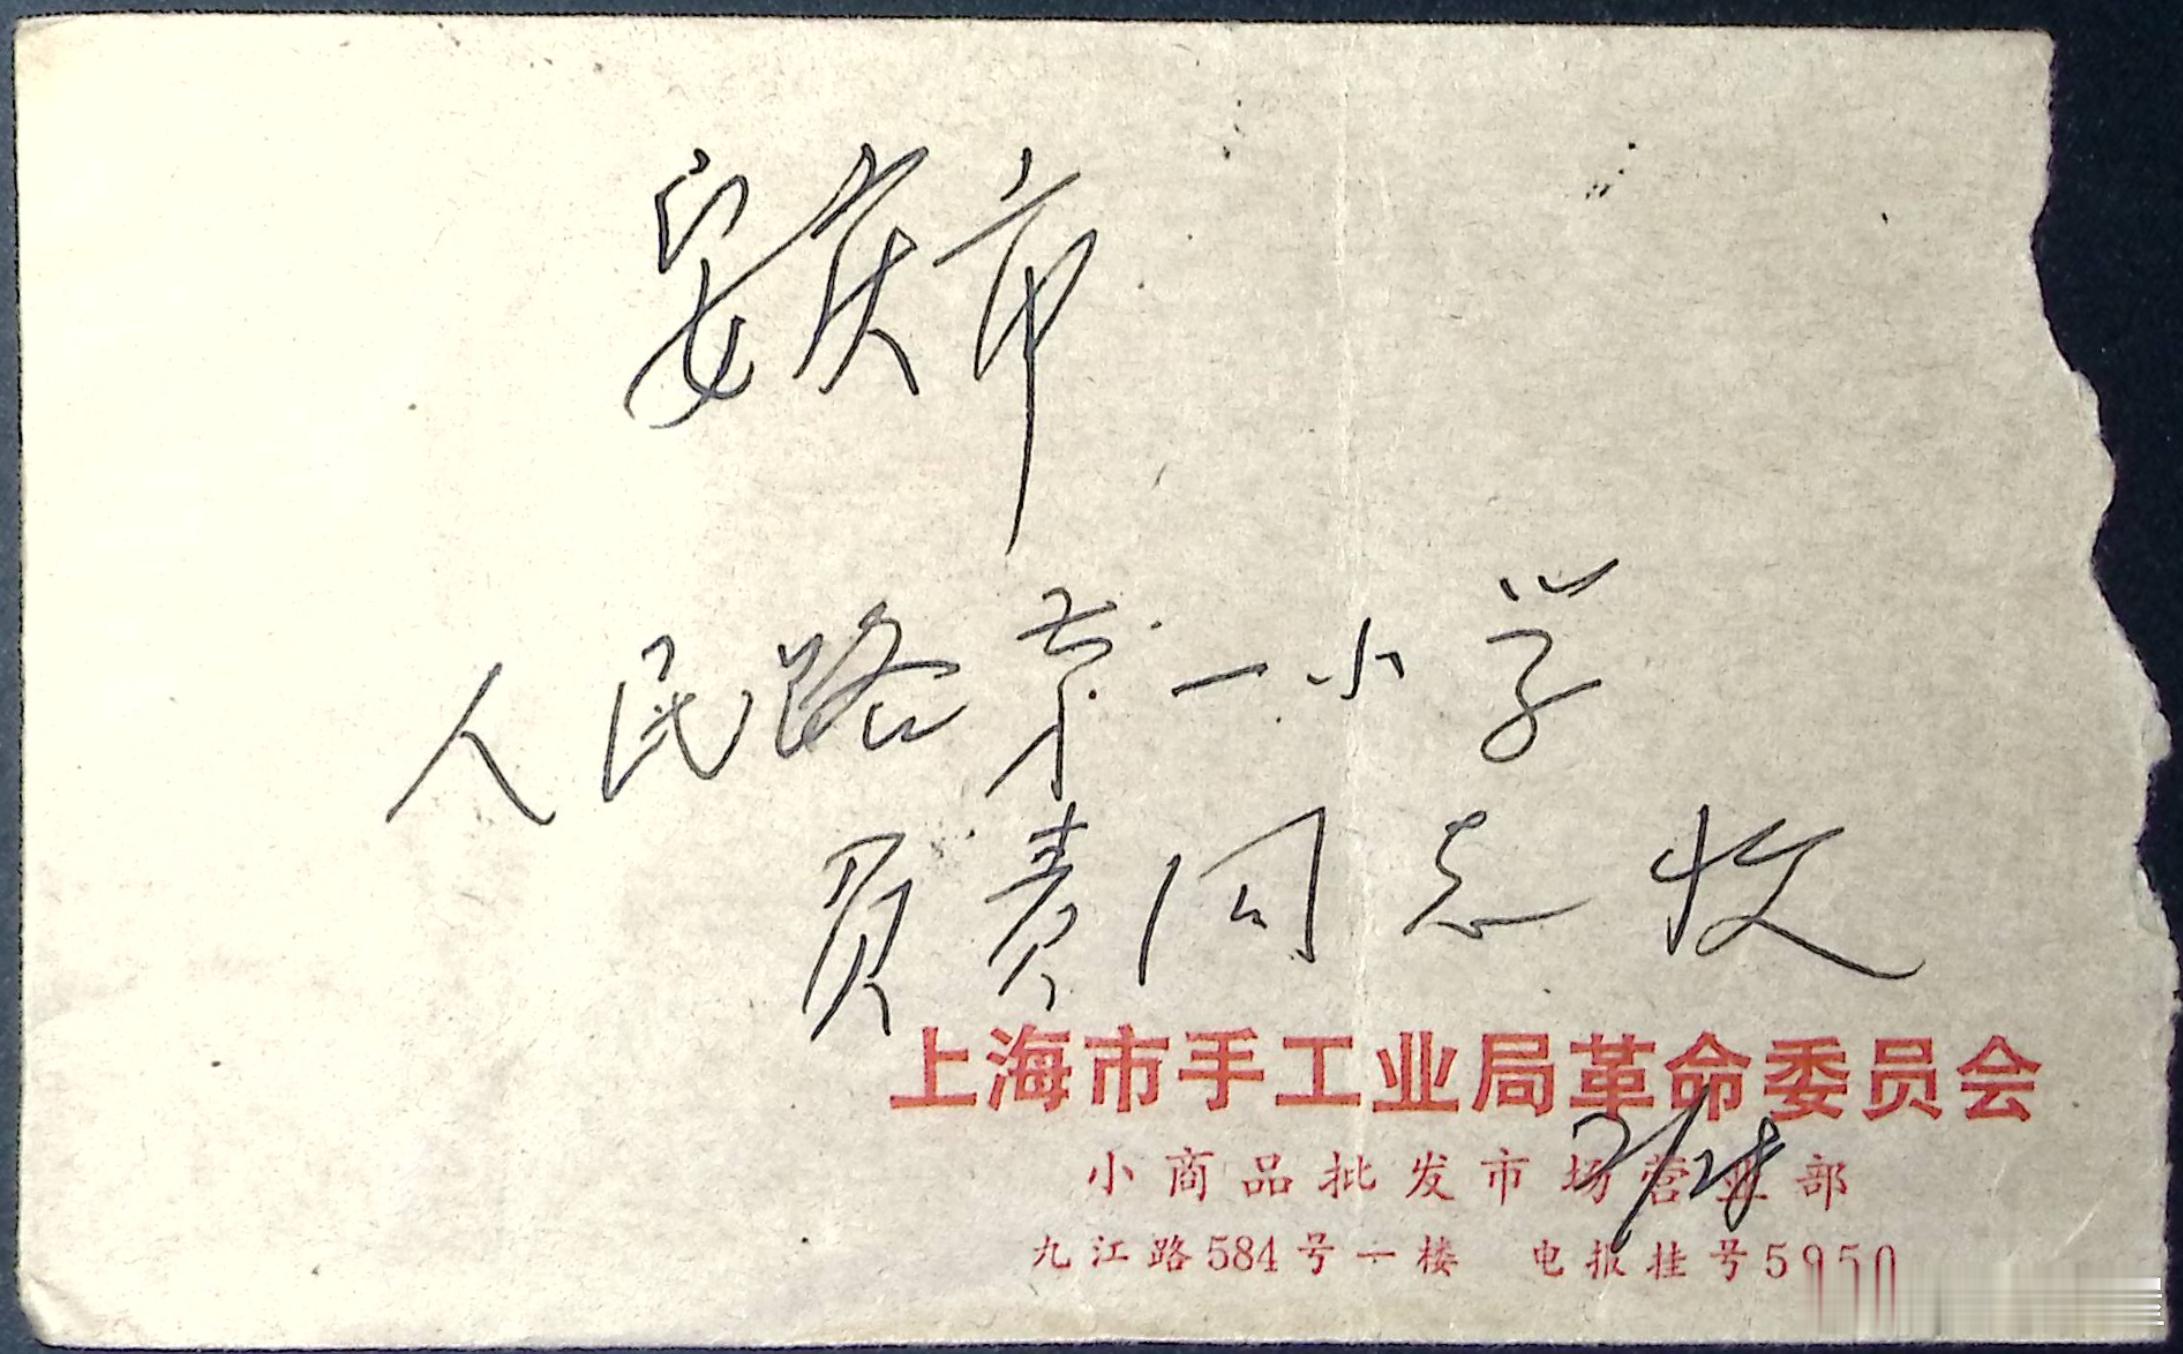 安庆市
人民路第一小学
负责同志收
上海市手工业局革命委员会
2/28
小商品批发市场营业部
九江路584号一楼 电报挂号5950